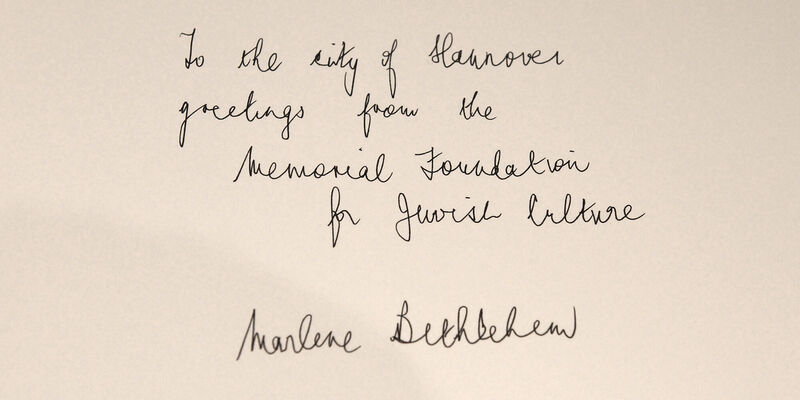 To the city of Hannover
greetings from the
Memorial Foundation
for Jewish Culture
Marlene Bethlehem